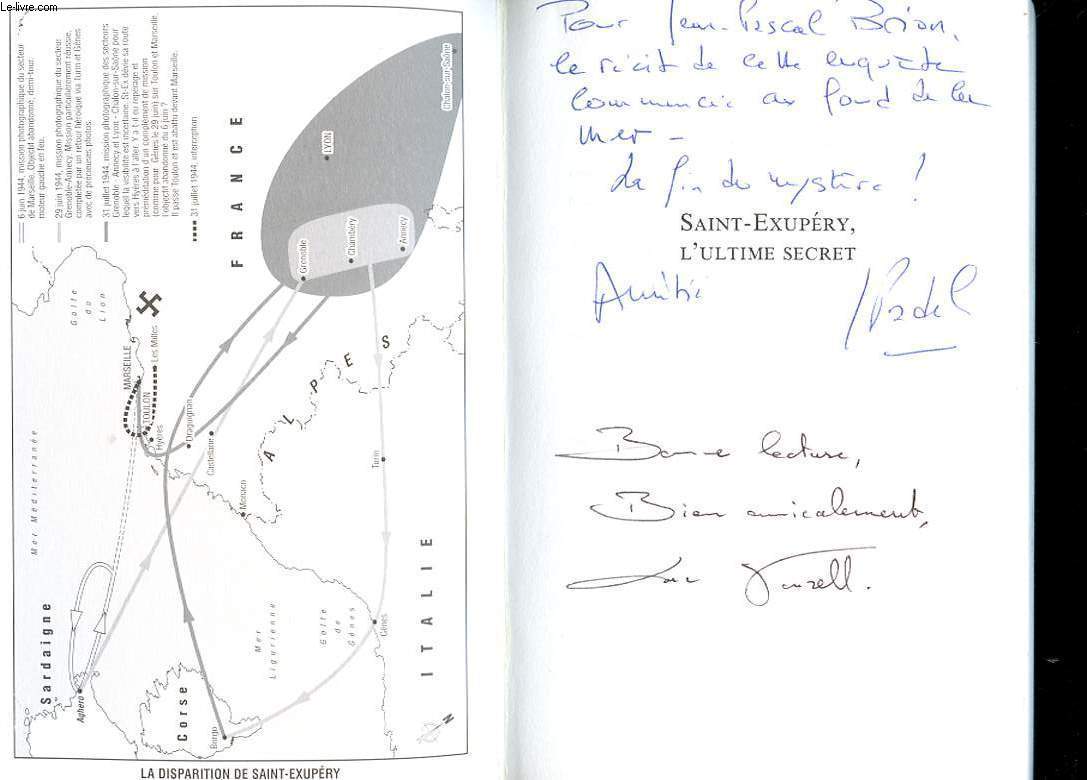 Le-livre.com
6 juin 1944, mission photographique du secteur
de Marseille. Objectif abandonné, demi-tour,
moteur gauche en feu.
29 juin 1944, mission photographique du secteur
Grenoble-Annecy. Mission particulièrement réussie,
complétée par un retour héroïque via Turin et Gênes
avec de précieuses photos.
31 juillet 1944, mission photographique des secteurs
Grenoble - Annecy et Lyon - Chalon-sur-Saône pour
lequel la visibilité est incertaine. St-Ex dévie sa route
vers Hyères à l'aller. Y a t il eu repérage et
préméditation d'un complément de mission
(comme pour Gênes le 29 juin) sur Toulon et Marseille,
l'objectif abandonné du 6 juin ?
Il passe Toulon et est abattu devant Marseille.
31 juillet 1944, interception
FRANCE
Chalon-sur-Saône
LYON
Grenoble
Chambéry
Annecy
Golfe
du
Lion
MARSEILLE
Les Milles
TOULON
Hyères
Draguignan
Castellane
Monaco
ALPES
Turin
Mer Méditerranée
Sardaigne
Alghero
Corse
Borgo
Mer
Ligurienne
Golfe
de
Gênes
Gênes
ITALIE
N
LA DISPARITION DE SAINT-EXUPÉRY
Pour Jean-Pascal Brion,
le récit de cette enquête
commencée au fond de la
mer -
La fin du mystère !
SAINT-EXUPÉRY,
L'ULTIME SECRET
Amitié
Bonne lecture,
Bien amicalement,
Luc Vanrell.